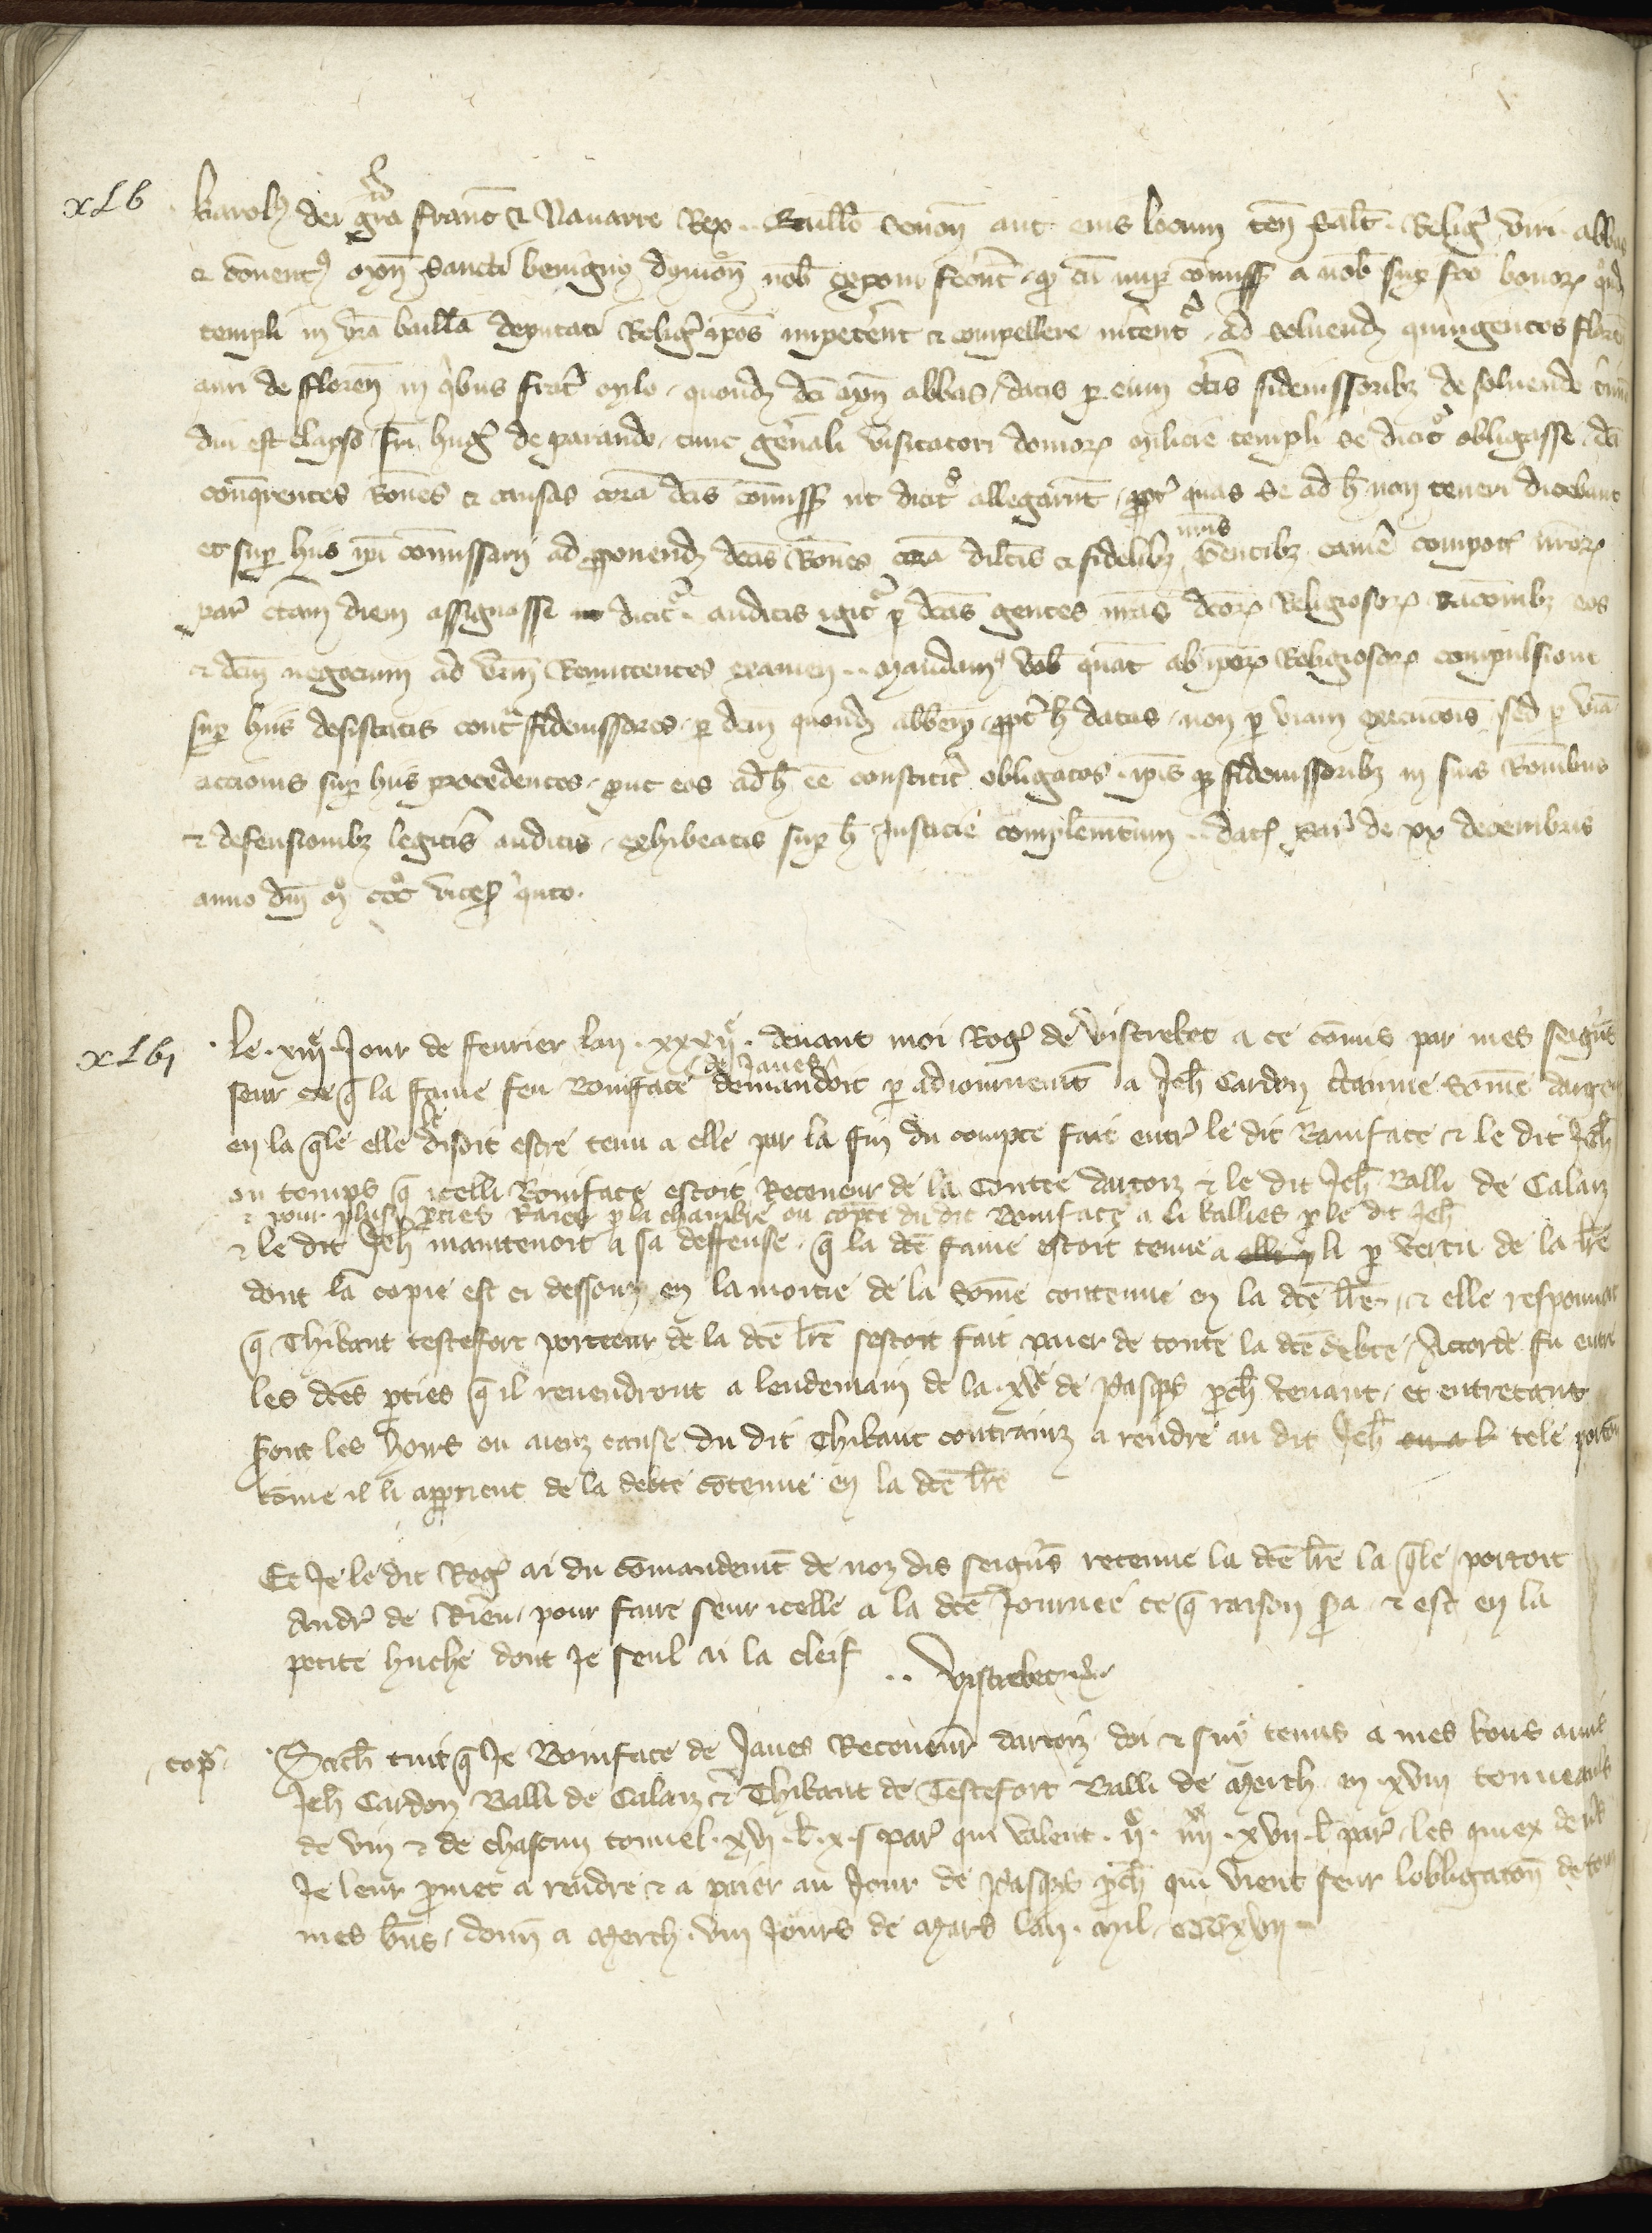 xLv Karolus dei gra Franc et Navarre Rex .. Baillo Senon aut eius locum ten salt. Religi viri abbas
et conventus mon Sancti Benigni Dyvion nob exponi fecert q cu nup commiss a nob sup fco bonor qnd
templi in vra baillia deputati Religi ipos impetent et compellere intent ad solvend quingentos floren
auri de Floren in qbus frat mylo quond dci mon abbas datis p eum ctis fideiussoribz de solvendo tmi
diu est elapso fri hug de parando tunc genali visitatori domor milicie templi se dicit obligasse. dci
conqrentes rones et causas cora dcis commiss ut dicit allegarut ppt quas se ad h non teneri dicebant
et sup hiis ipi commissarii ad pponend dcas rones cora dilcis et fidelibz nris gentibz camere compotor nror
par ctam diem assignasse dicit. auditis igit p dcas gentes nras dcor religiosor racoibz eos
et dcm negocium ad vrm remittentes examen .. mandamus vob quat ab ipor religiosor compulsione
sup hiis desistatis cont fideiussores p dcm quond abbem ppt h datos non p viam execucois sed p via
actionis sup hiis procedentes put eos ad h ee constitit obligatos. ipis q fideiussoribz in suis ronibus
et defensionibz legitis auditis exhibeatis sup h justicie complemtum .. dat par die xx decembris
anno dni mo ccco vices qnto.
xLvj Le xiiije jour de fevrier lan xxxije devant moi Rog de Vistrebec a ce comis par mes seigns
seur ce q la fame feu Boniface de Janes demandoit p adjournemt a Jeh Cardon ctainne somme dargent
en la qle elle le disoit estre tenu a elle par la fin du compte fait entr le dit Boniface et le dit Jeh
ou temps q icelli Boniface estoit receveur de la Contee dartoiz et le dit Jeh Balli de Calaiz
et pour plus pties raiees p la chambre ou copte du dit Boniface a li ballies p le dit Jeh
et le dit Jeh maintenoit a sa deffense q la dce fame estoit tenue a li p vertu de la lre
dont la copie est ci dessouz en la moitie de la somme contenue en la dce lre et elle responnant
q Thibaut testefort porteur de la dce lre sestoit fait paier de toute la dce debte. Accorde fu entre
les dces pties q il revendront a lendemain de la xve de Pasqs pch venant et entretant
sont les hoirs ou aienz cause du dit Thibaut contrainz a rendre au dit Jeh tele porcon
comme il li appartient de la debte contenue en la dce lre
Et je le dit Rog ai du comandemt de noz dis seigns retenue la dce lre la qle portoit
Andr de pour faire seur icelle a la dce journee ce q raison sa et est en la
petite huche dont je seul ai la cleif .. Vistrebec
copie Sach tuit q je Boniface de Janes receveur dartoiz doi et suy tenus a mes bons amis
Jeh Cardon Balli de Calaiz et Thibaut de Testefort Balli de Merch en xviii tonneaus
de vin et de chascun tonnel xvj l x s par qui valent ijc iiijxx xvii l par les quiex den
je leur pmet a rendre et a paier au jour de Pasqs pch qui vient seur lobligacon de touz
mes bns donn a Merch viii jours de mars lan mil cccxvij